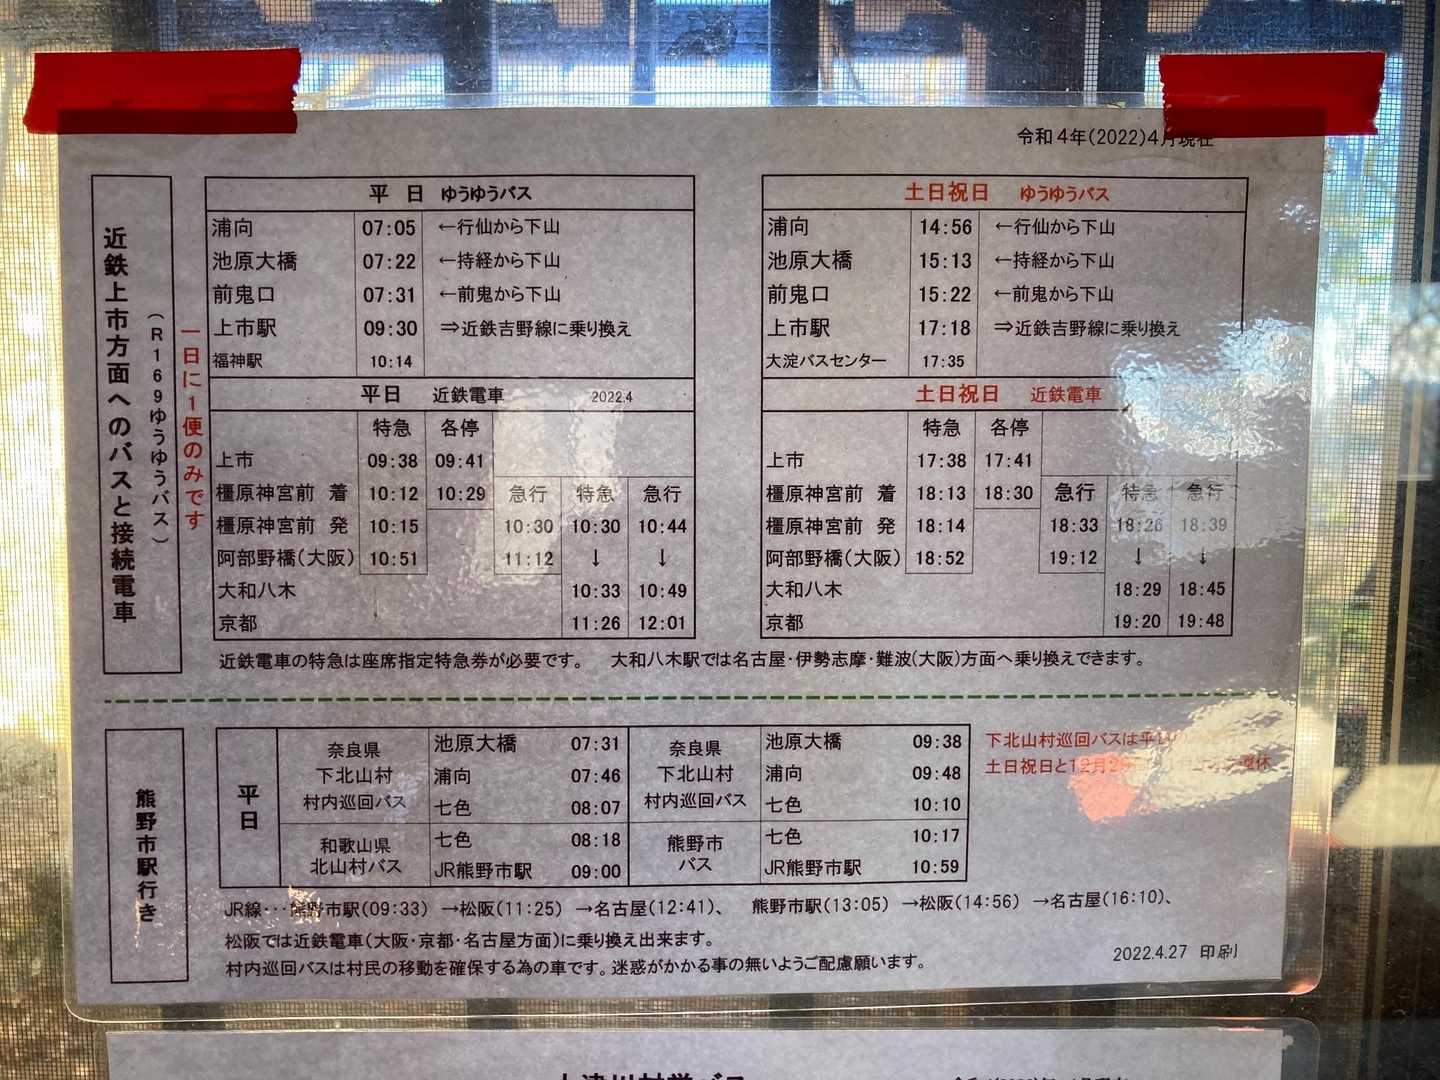 令和4年(2022)4月現在
近鉄上市方面へのバスと接続電車
(R169ゆうゆうバス)
一日に1便のみです
平 日 ゆうゆうバス
浦向 07:05 ←行仙から下山
池原大橋 07:22 ←持経から下山
前鬼口 07:31 ←前鬼から下山
上市駅 09:30 ⇒近鉄吉野線に乗り換え
福神駅 10:14
平日 近鉄電車 2022.4
特急 各停
上市 09:38 09:41
橿原神宮前 着 10:12 10:29 急行 特急 急行
橿原神宮前 発 10:15 10:30 10:30 10:44
阿部野橋(大阪) 10:51 11:12 ↓ ↓
大和八木 10:33 10:49
京都 11:26 12:01
土日祝日 ゆうゆうバス
浦向 14:56 ←行仙から下山
池原大橋 15:13 ←持経から下山
前鬼口 15:22 ←前鬼から下山
上市駅 17:18 ⇒近鉄吉野線に乗り換え
大淀バスセンター 17:35
土日祝日 近鉄電車
特急 各停
上市 17:38 17:41
橿原神宮前 着 18:13 18:30 急行 特急 急行
橿原神宮前 発 18:14 18:33 18:26 18:39
阿部野橋(大阪) 18:52 19:12 ↓ ↓
大和八木 18:29 18:45
京都 19:20 19:48
近鉄電車の特急は座席指定特急券が必要です。 大和八木駅では名古屋・伊勢志摩・難波(大阪)方面へ乗り換えできます。
熊野市駅行き
平日
奈良県
下北山村
村内巡回バス
池原大橋 07:31
浦向 07:46
七色 08:07
和歌山県
北山村バス
七色 08:18
JR熊野市駅 09:00
奈良県
下北山村
村内巡回バス
池原大橋 09:38
浦向 09:48
七色 10:10
熊野市
バス
七色 10:17
JR熊野市駅 10:59
下北山村巡回バスは平
土日祝日と12月29 運休
JR線・・・熊野市駅(09:33) →松阪(11:25) →名古屋(12:41)、 熊野市駅(13:05) →松阪(14:56) →名古屋(16:10)、
松阪では近鉄電車(大阪・京都・名古屋方面)に乗り換え出来ます。
村内巡回バスは村民の移動を確保する為の車です。迷惑がかかる事の無いようご配慮願います。
2022.4.27 印刷